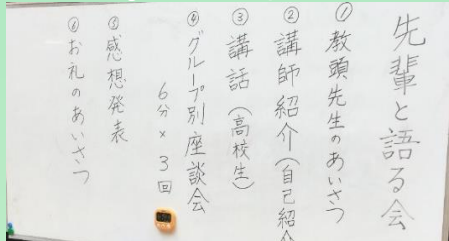 先輩と語る会
①教頭先生のあいさつ
②講師紹介(自己紹介
③講話(高校生)
④グループ別座談会
6分×3回
⑤感想発表
⑥お礼のあいさつ